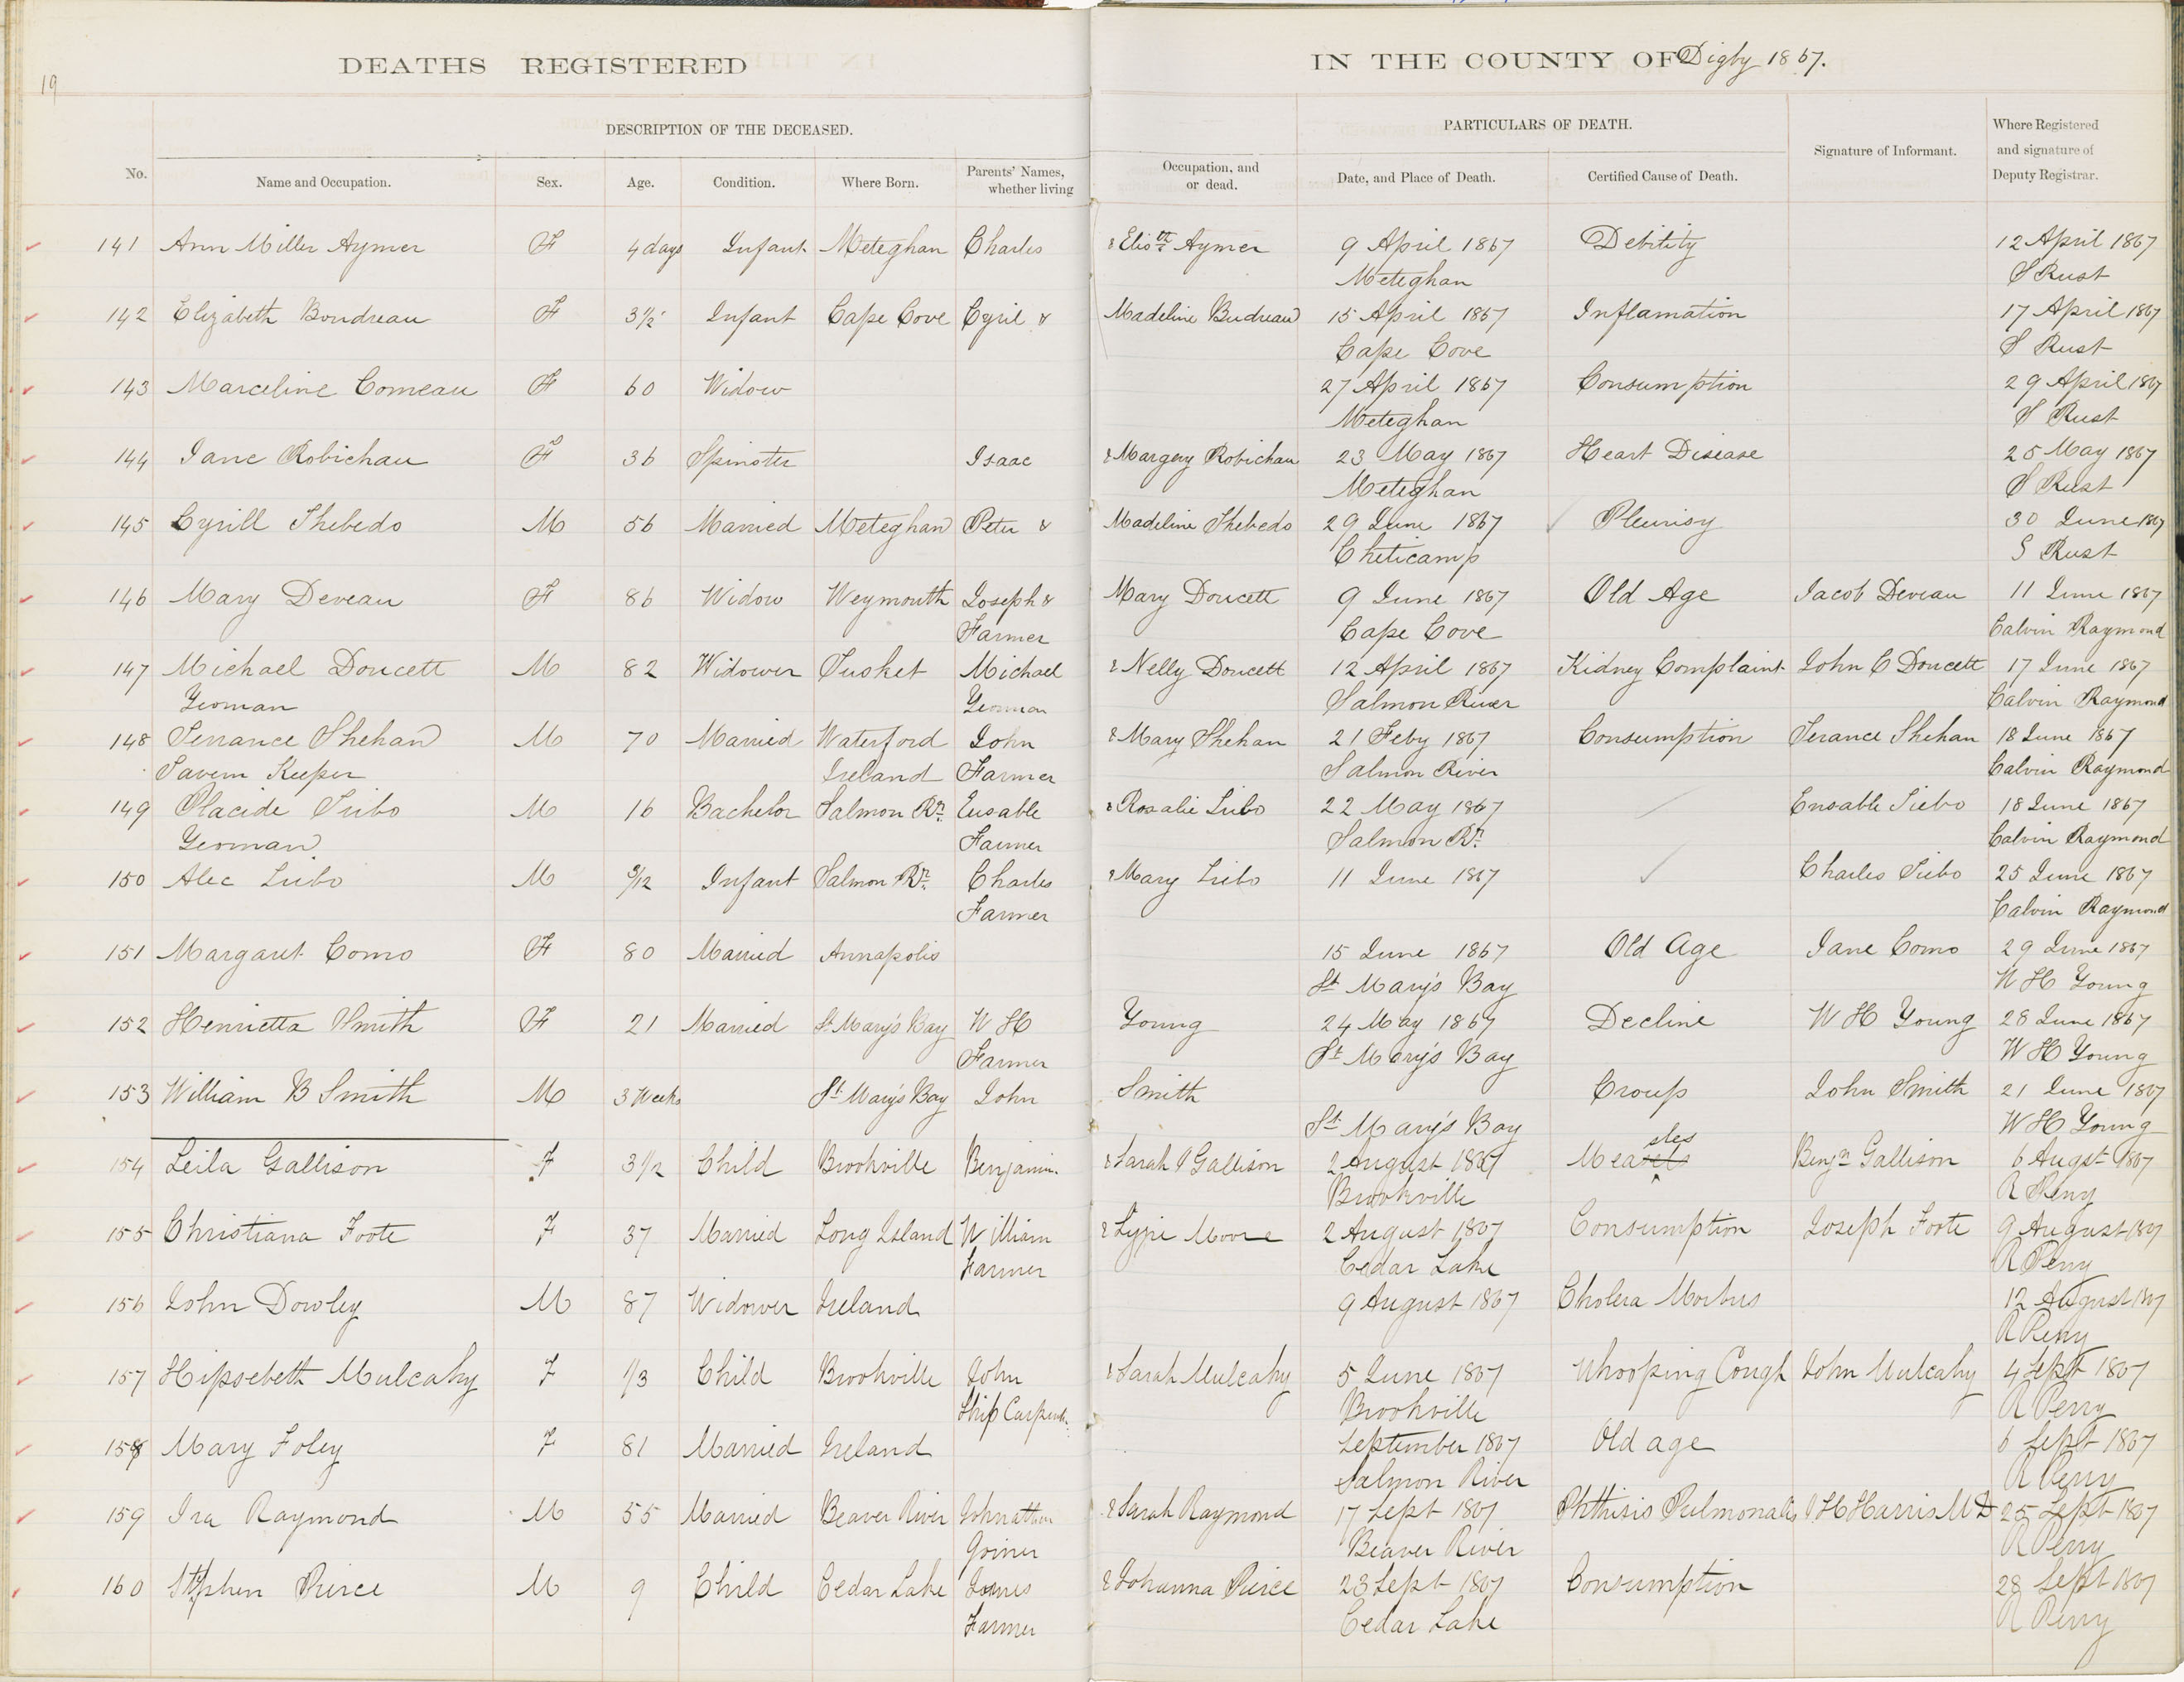 DEATHS REGISTERED IN THE COUNTY OF Digby 1867.
19
DESCRIPTION OF THE DECEASED. PARTICULARS OF DEATH. Where Registered and signature of Deputy Registrar.
No. Name and Occupation. Sex. Age. Condition. Where Born. Parents' Names, whether living Occupation, and or dead. Date, and Place of Death. Certified Cause of Death. Signature of Informant.
141 Ann Miller Aymer F 4 days Infant Meteghan Charles & Elisth Aymer 9 April 1867 Debility 12 April 1867
Meteghan S Rust
142 Elizabeth Boudreau F 3½ Infant Cape Cove Cyril & Madeline Budreau 15 April 1867 Inflamation 17 April 1867
Cape Cove S Rust
143 Marceline Comeau F 60 Widow 27 April 1867 Consumption 29 April 1867
Meteghan S Rust
144 Jane Robichau F 36 Spinster Isaac & Margery Robichau 23 May 1867 Heart Disease 25 May 1867
Meteghan S Rust
145 Cyrill Thebedo M 56 Married Meteghan Peter & Madeline Thebedo 29 June 1867 Pleurisy 30 June 1867
Cheticamp S Rust
146 Mary Deveau F 86 Widow Weymouth Joseph & Mary Doucett 9 June 1867 Old Age Jacob Deveau 11 June 1867
Farmer Cape Cove Calvin Raymond
147 Michael Doucett M 82 Widower Tusket Michael & Nelly Doucett 12 April 1867 Kidney Complaint John C Doucett 17 June 1867
Yeoman Yeoman Salmon River Calvin Raymond
148 Terrance Shehan M 70 Married Waterford John & Mary Shehan 21 Feby 1867 Consumption Terance Shehan 18 June 1867
Tavern Keeper Ireland Farmer Salmon River Calvin Raymond
149 Placide Tibo M 16 Bachelor Salmon Rr. Eusable & Rosalie Tibo 22 May 1867 Eusable Tiebo 18 June 1867
Yeoman Farmer Salmon Rr. Calvin Raymond
150 Alec Tibo M 9/12 Infant Salmon Rr. Charles & Mary Tibo 11 June 1867 Charles Tiebo 25 June 1867
Farmer Calvin Raymond
151 Margaret Como F 80 Married Annapolis 15 June 1867 Old Age Jane Como 29 June 1867
St Mary's Bay W H Young
152 Henrietta Smith F 21 Married St Mary's Bay W H Young 24 May 1867 Decline W H Young 28 June 1867
Farmer St Mary's Bay W H Young
153 William B Smith M 3 Weeks St Mary's Bay John Smith Croup John Smith 21 June 1867
St Mary's Bay W H Young
154 Leila Gallison F 3½ Child Brookville Benjamin & Sarah J Gallison 2 August 1867 Measles Benjn Gallison 6 Augst 1867
Brookville R Perry
155 Christiana Foote F 37 Married Long Island William & Moore 2 August 1867 Consumption Joseph Foote 9 August 1867
Farmer Cedar Lake R Perry
156 John Dowley M 87 Widower Ireland 9 August 1867 Cholera Morbus 12 August 1867
R Perry
157 Hipsebeth Mulcahy F 1/3 Child Brookville John & Sarah Mulcahy 5 June 1867 Whooping Cough John Mulcahy 4 Sept 1867
Ship Carpentr. Brookville R Perry
158 Mary Foley F 81 Married Ireland September 1867 Old age 6 Sept 1867
Salmon River R Perry
159 Ira Raymond M 55 Married Beaver River Johnathan & Sarah Raymond 17 Sept 1867 Phthisis Pulmonalis J H Harris M D 25 Sept 1867
Joiner Beaver River R Perry
160 Stephen Pierce M 9 Child Cedar Lake James & Johanna Pierce 23 Sept 1867 Consumption 28 Sept 1867
Farmer Cedar Lake R Perry